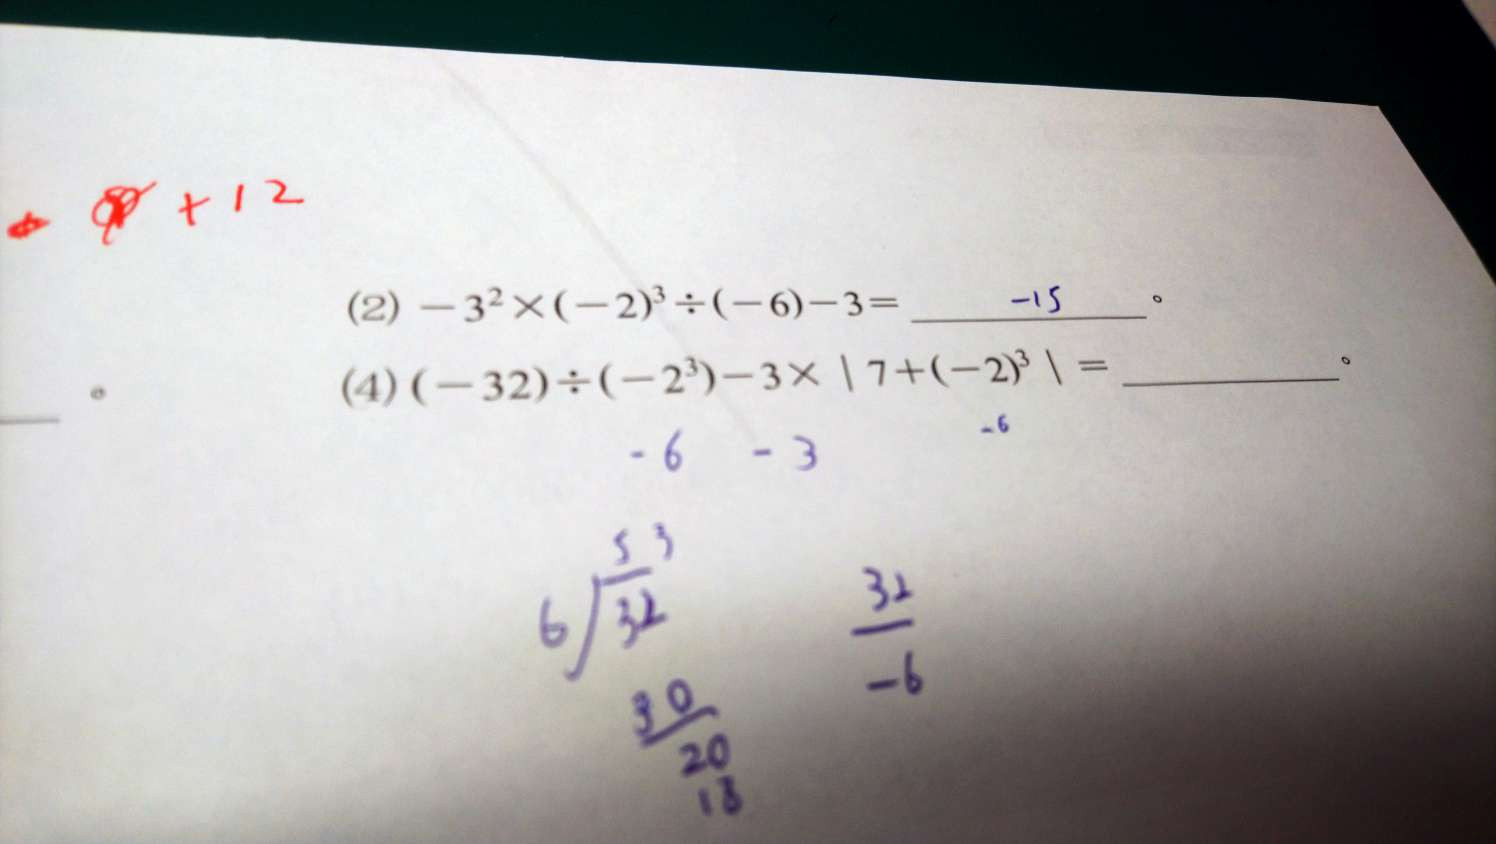 +12
(2) －3²×(－2)³÷(－6)－3= -15 。
(4) (－32)÷(－2³)－3×|7+(－2)³|= 。
-6
-6 -3
53
6 32
32
-6
30
20
18